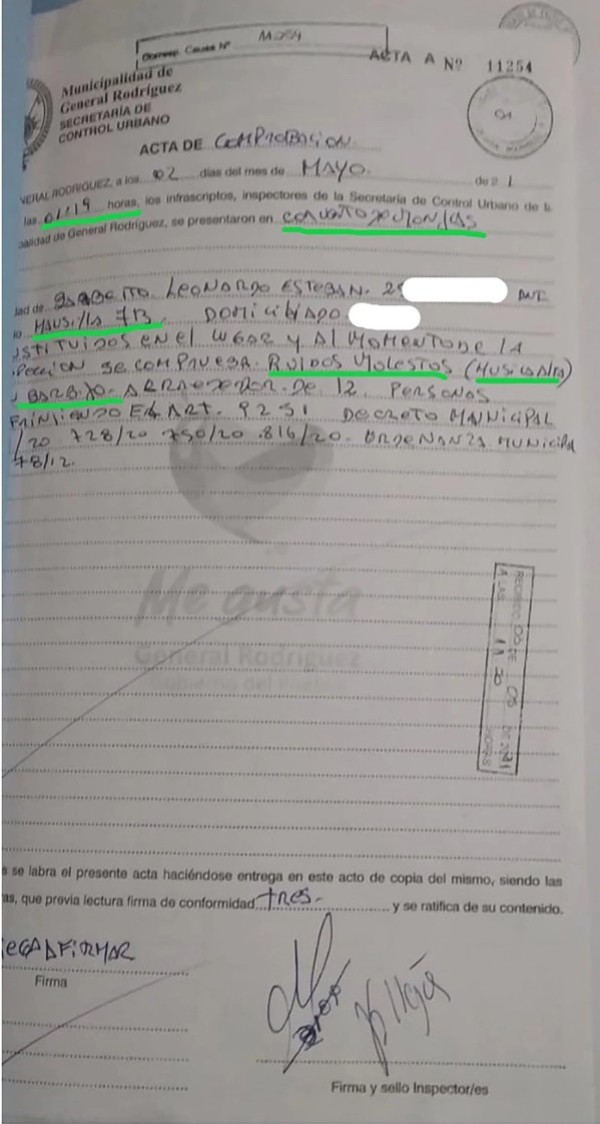 Corresp. Causa Nº
ACTA A Nº 11254
Municipalidad de
General Rodríguez
SECRETARÍA DE
CONTROL URBANO
ACTA DE COMPROBACION
NERAL RODRÍGUEZ, a los 02 días del mes de MAYO de 21
las 01:19 horas, los infrascriptos, inspectores de la Secretaría de Control Urbano de l
palidad de General Rodríguez, se presentaron en
dad de LEONARDO ESTEBAN. 29
MANSILLA 713. DOMICILIADO
STITUIDOS EN EL LUGAR Y AL MOMENTO DE LA
PECCION SE COMPRUEBA. RUIDOS MOLESTOS (MUSICA ALTA)
BARBIJO. ALRREDEDOR. DE 12. PERSONAS
ART. 9251 DECRETO MUNICIPAL
/20 728/20 750/20 .816/20. ORDENANZA MUNICIPAL
78/12.
Me gusta
General Rodríguez
RECIBIDO
A LAS
HORAS
s se labra el presente acta haciéndose entrega en este acto de copia del mismo, siendo las
as, que previa lectura firma de conformidad TRES.- y se ratifica de su contenido.
EGA A FIRMAR
Firma
Firma y sello Inspector/es